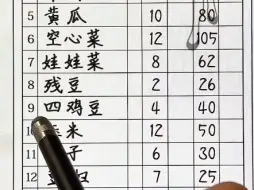 5 黄瓜 10 80
6 空心菜 12 105
7 娃娃菜 8 62
8 残豆 2 26
9 四鸡豆 4 40
10 米 12 50
11 子 6 30
12 豆 7 25